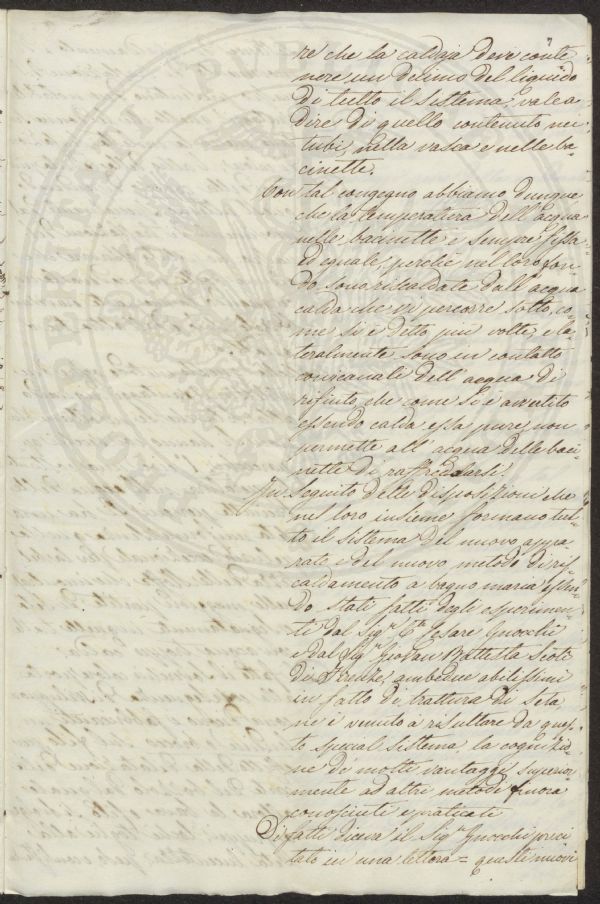 re che la caldaja deve conte-
nere un decimo del liquido
di tutto il sistema, vale a
dire di quello contenuto nei
tubi, nella vasca e nelle ba-
cinette.
Con tal congegno abbiamo dunque
che la temperatura dell'acqua
nelle bacinette è sempre fissa
ed eguale, perchè nel loro fon-
do sono riscaldate dall'acqua
calda che vi percorre sotto, co-
me si è detto più volte, e la-
teralmente sono in contatto
coi canali dell'acqua di
rifiuto, che come si è avvertito
essendo calda essa pure, non
permette all'acqua delle baci-
nette di raffredarsi.
In seguito delle disposizioni che
nel loro insieme formano tut-
to il sistema del nuovo appa-
rato e del nuovo metodo di ris-
caldamento a bagno maria essen-
do stati fatti degli esperimen-
ti dal Sig.r Cesare Gnocchi
e dal Sig.r Giovan Battista Scoti
di Firenze, ambedue abilissimi
in fatto di trattura di seta
ne è venuto a risultare da ques-
to special sistema la cognizio-
ne di molti vantaggi superior-
mente ad altri metodi finora
conosciuti e praticati
Di fatti diceva il Sig.r Gnocchi preci-
tato in una lettera = questi nuovi